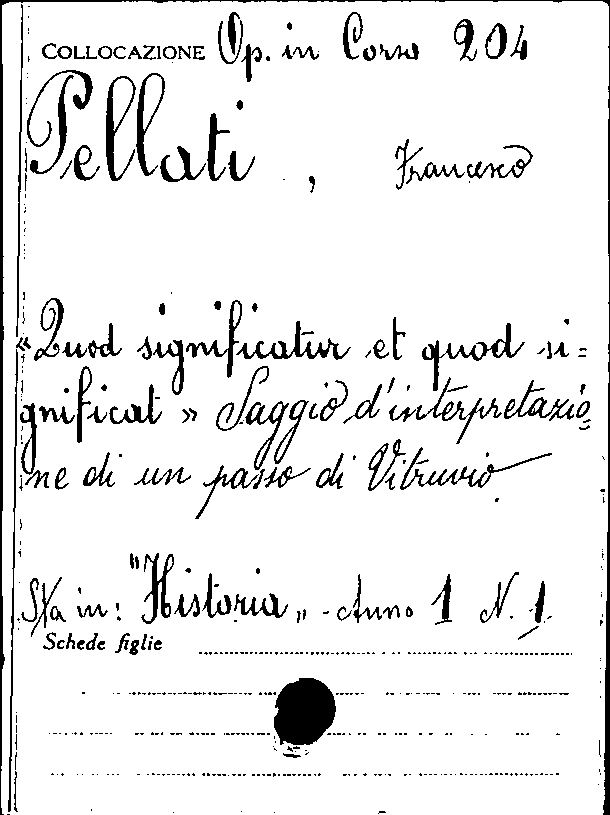 COLLOCAZIONE Op. in Corso 204
Pellati , Francesco
«Quod significatur et quod si=
gnificat» Saggio d'interpretazio=
ne di un passo di Vitruvio.
Sta in: "Historia„ - Anno 1 N. 1.
Schede figlie